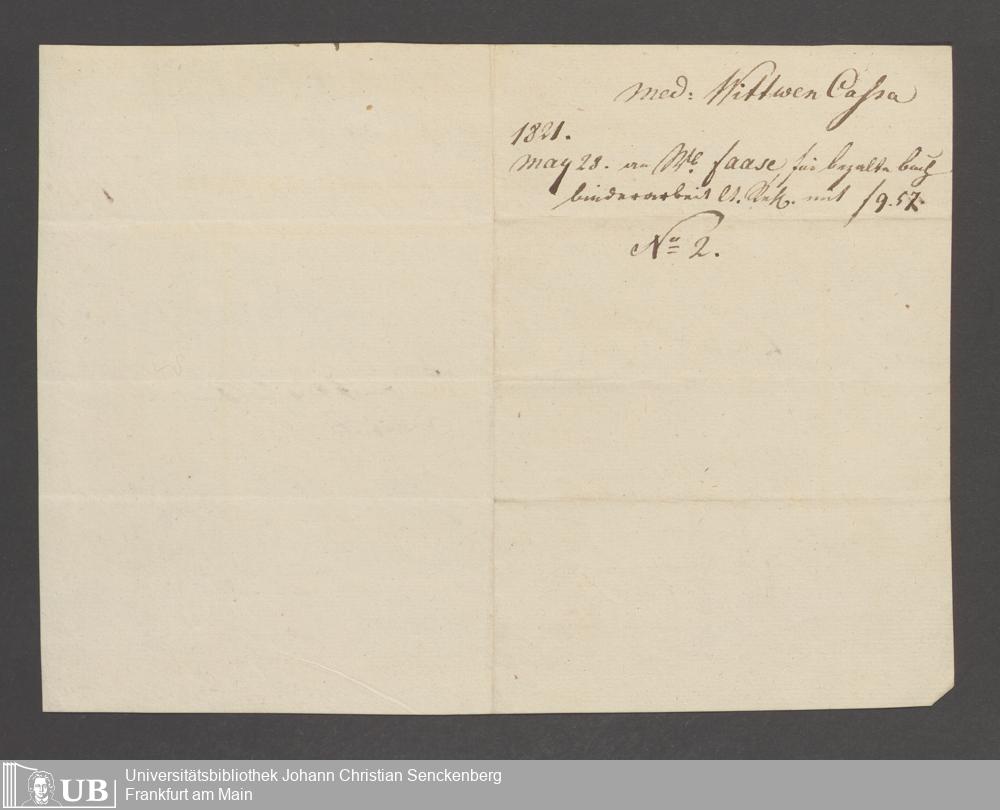 med: Wittwen Cassa
1821.
May 28. an W. Haase, für bezalte buch
binderarbeit lt. mit f 9.57.
No 2.
UB
Universitätsbibliothek Johann Christian Senckenberg
Frankfurt am Main